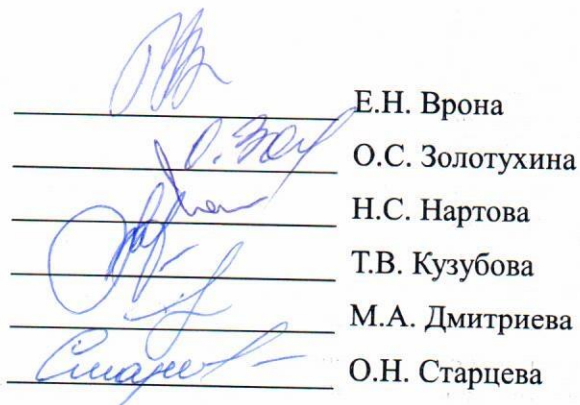 Е.Н. Врона
О. Зол О.С. Золотухина
Н.С. Нартова
Т.В. Кузубова
М.А. Дмитриева
О.Н. Старцева